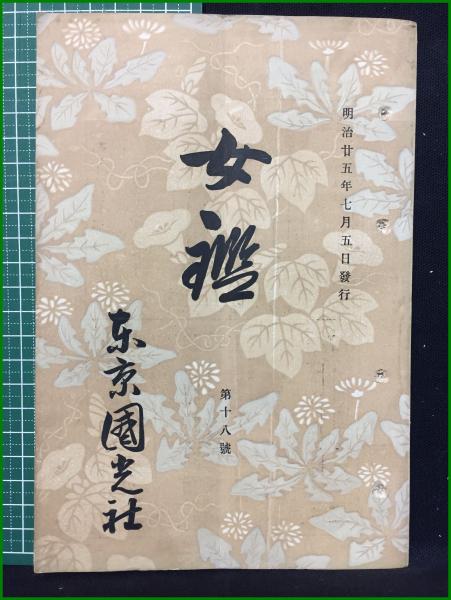 明治廿五年七月五日發行
女鑑
第十八號
东京國光社